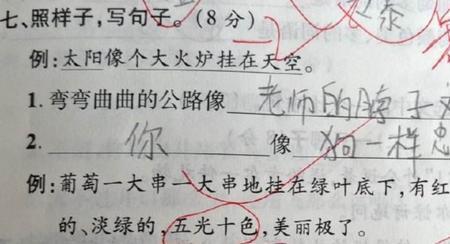 七、照样子,写句子。(8分) -2
例:太阳像个大火炉挂在天空。
1. 弯弯曲曲的公路像 老师的脖子
2. 你 像 狗一样忠
例:葡萄一大串一大串地挂在绿叶底下,有红
的、淡绿的,五光十色,美丽极了。